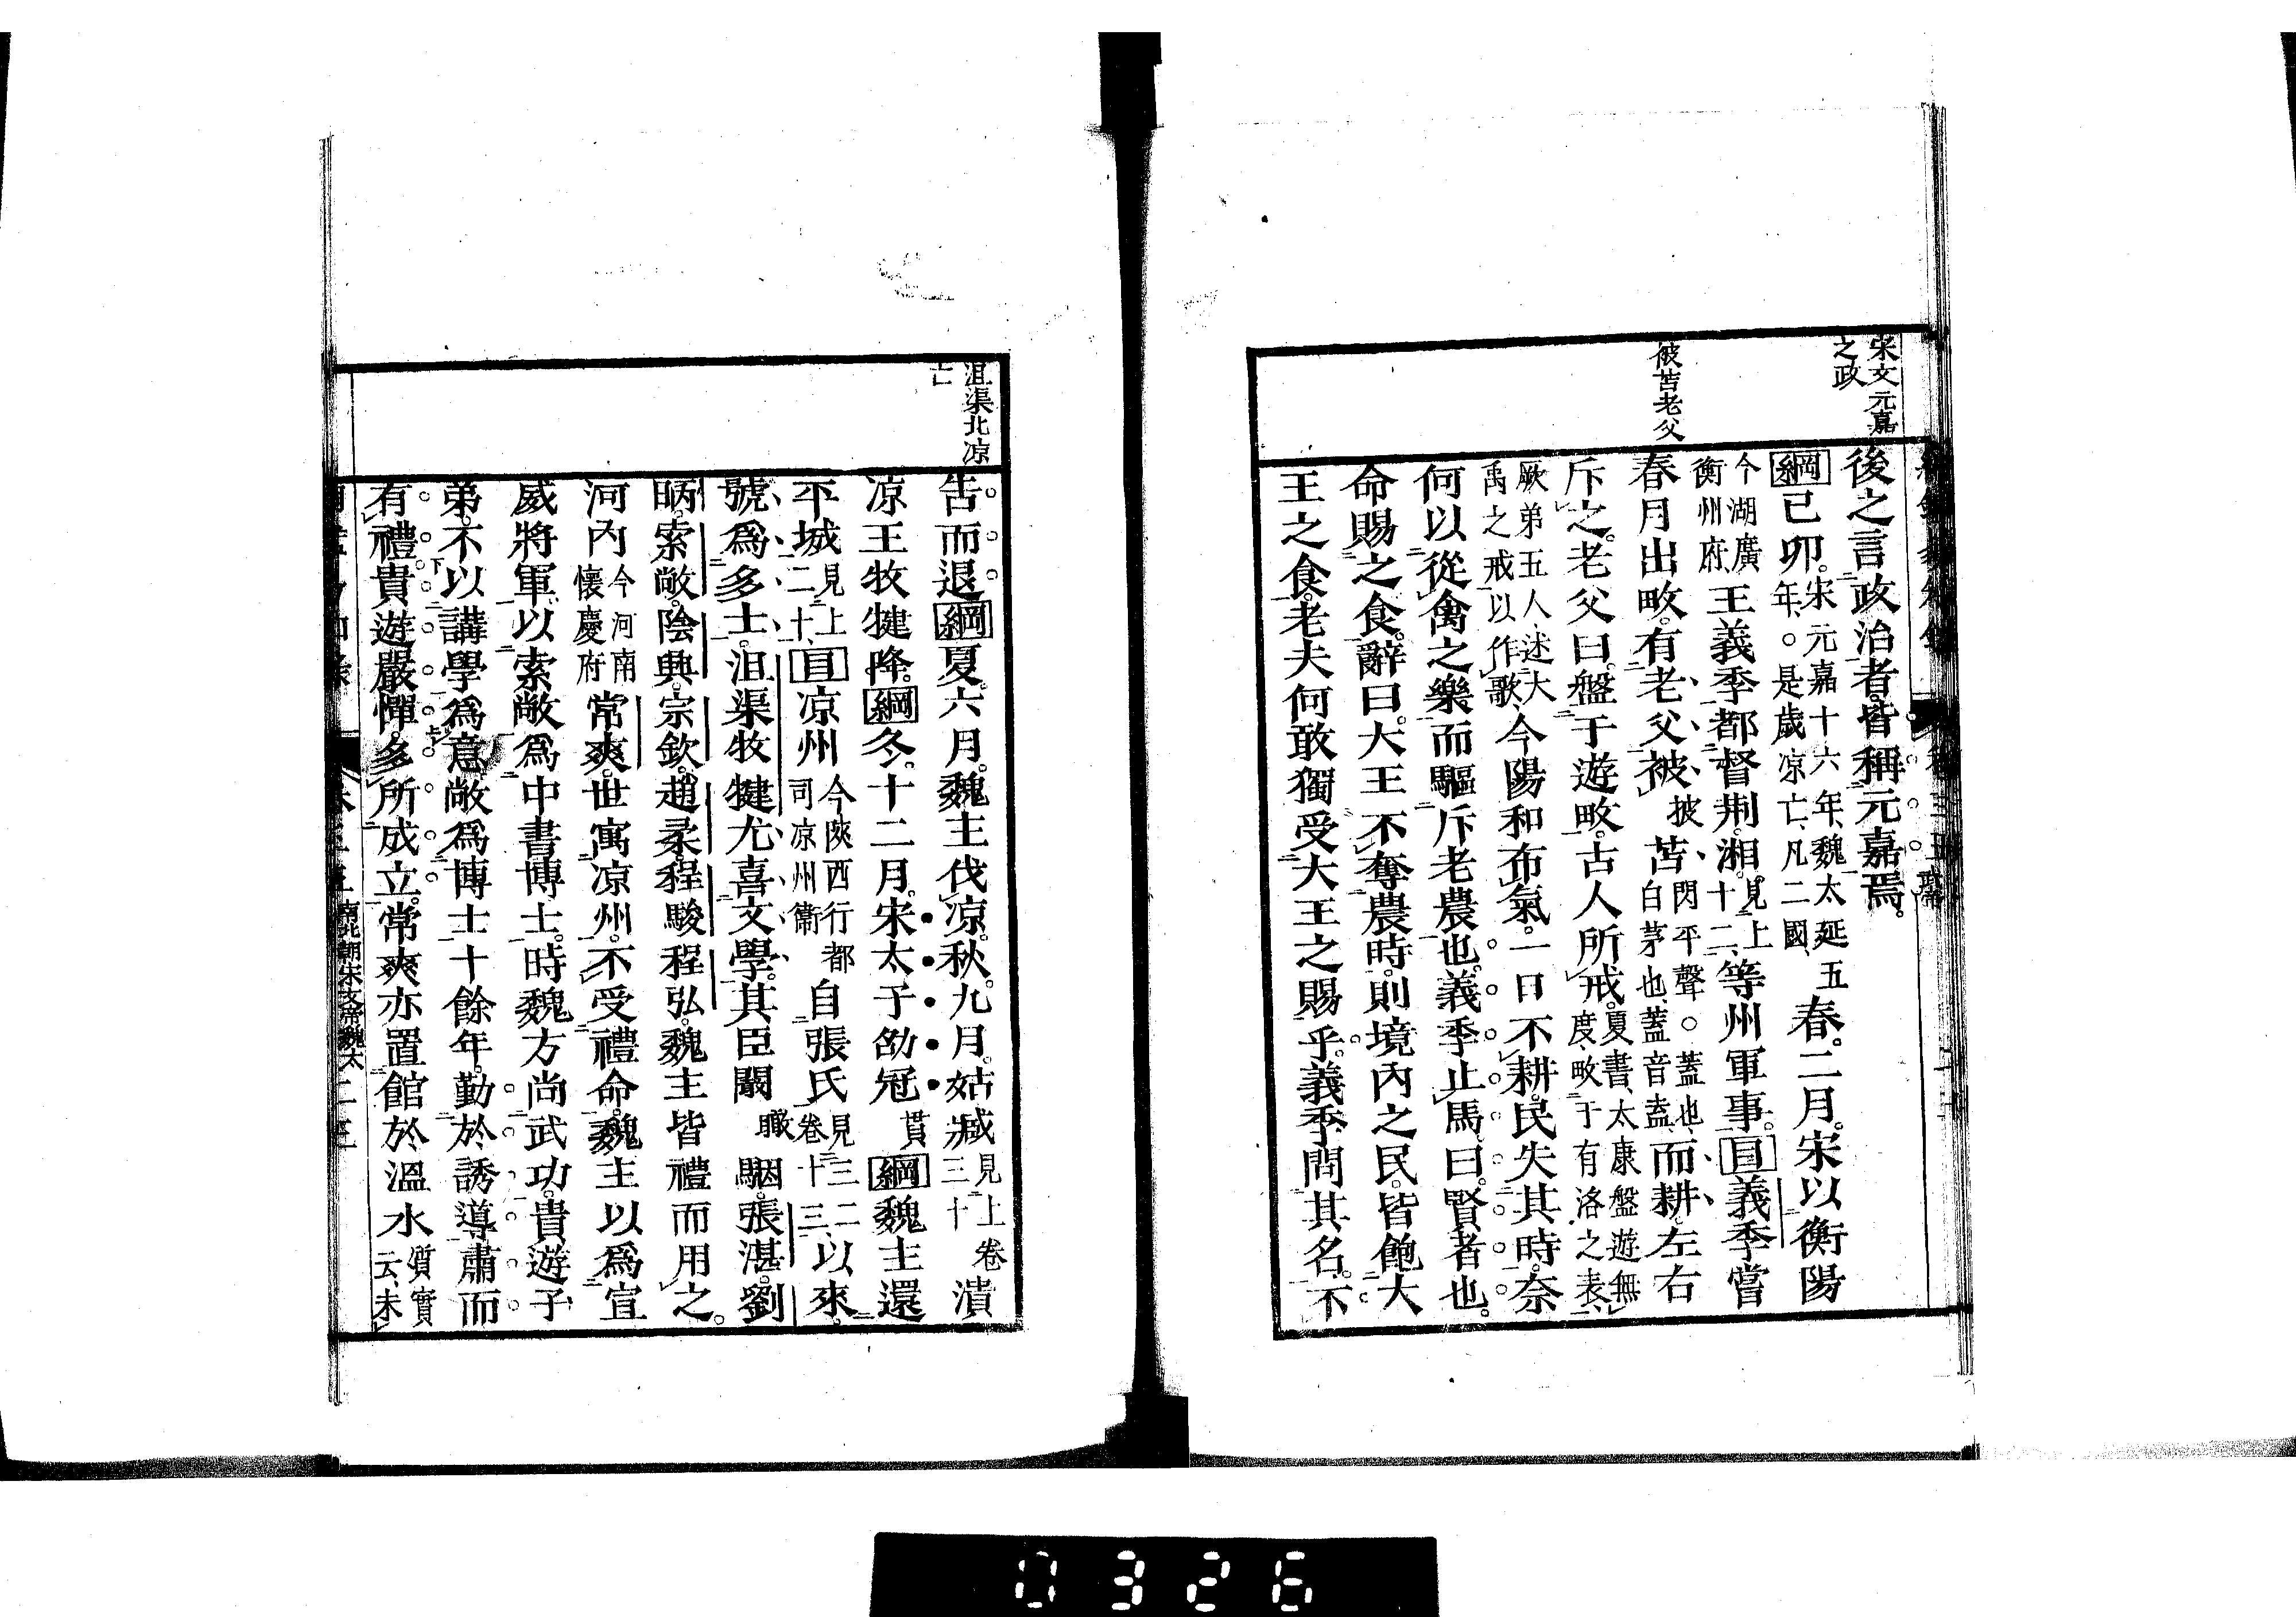 宋文元嘉
之政
被苫老父
後之言政治者皆稱元嘉焉。
綱己卯。宋元嘉十六年、魏太延五年、○是歲凉亡、凡二國、春。二月。宋以衡陽
今湖廣衡州府王義季都督荆。湘。見上十二、等州軍事。目義季嘗
春月出畋。有老父被披苫閃平聲。○蓋也、白茅也、蓋音盍、而耕。左右
斥之。老父曰。盤于遊畋。古人所戒。夏書、太康盤遊無度、畋于有洛之表、
厥弟五人、述大禹之戒以作歌、今陽和布氣。一日不耕。民失其時。奈
何以從禽之樂。而驅斥老農也。義季止馬。曰。賢者也。
命賜之食。辭曰。大王不奪農時。則境內之民。皆飽大
王之食。老夫何敢獨受大王之賜乎。義季問其名。不
沮渠北凉
亡
告而退。綱夏。六月。魏主伐凉。秋。九月。姑臧見上卷三十潰
凉王牧犍降。綱冬。十二月。宋太子劭冠貫綱魏主還
平城見上二十、目凉州今陝西行都司凉州衞自張氏見三二卷十三、以來。
號爲多士。沮渠牧犍尤喜文學。其臣闞瞰駰。張湛。劉
昞。索敞。陰興。宗欽。趙柔。程駿程弘。魏主皆禮而用之。
河內今河南懷慶府常爽。世寓凉州。不受禮命。魏主以爲宣
威將軍。以索敞爲中書博士。時魏方尚武功。貴遊子
弟。不以講學爲意。敞爲博士十餘年。勤於誘導。肅而
有禮。貴遊嚴憚。多所成立。常爽亦置館於溫水質實云、未
南北朝宋文帝魏太